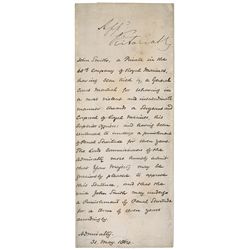 John Smith, a Private in the
60th Company of Royal Marines,
having been tried by a General
Court Martial for behaving in
a most violent and insubordinate
manner towards a Sergeant and
Corporal of Royal Marines, his
Superior Officers; and having been
sentenced to undergo a punishment
of Penal Servitude for seven years.
The Lords Commissioners of the
Admiralty most humbly submit
that Your Majesty may be
graciously pleased to approve
this Sentence, and that the
said John Smith may undergo
a Punishment of Penal Servitude
for a term of seven years
accordingly.
Admiralty
31. May